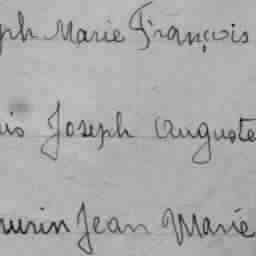 ph Marie François
is Joseph Auguste
urin Jean Marie